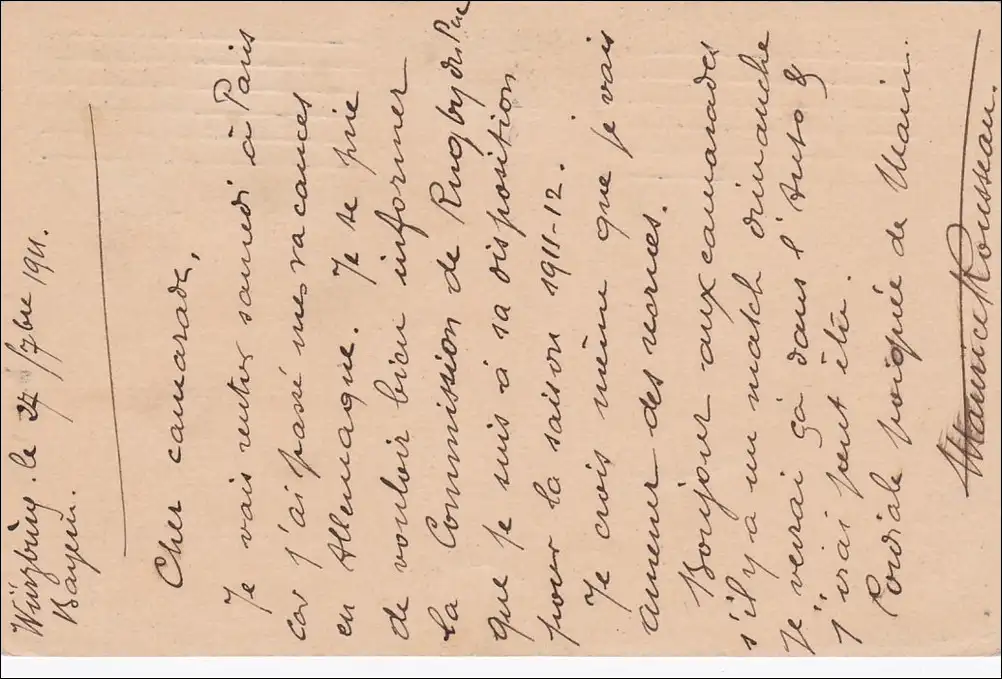 Würzbürg. le 27/7bre 1911.
Bayern.
Cher camarade,
Je vais rentrer samedi à Paris
car j'ai passé mes vacances
en Allemagne. Je te prie
de vouloir bien informer
la Commission de Rugby
que je suis à sa disposition
pour la saison 1911-12.
Je crois même que je vais
amener des recrues.
Bonjour aux camarades
s'il y a un match dimanche
je verrai ça dans l'Auto &
j'irai peut être.
Cordiale poignée de Main.
Maurice Rousseau.